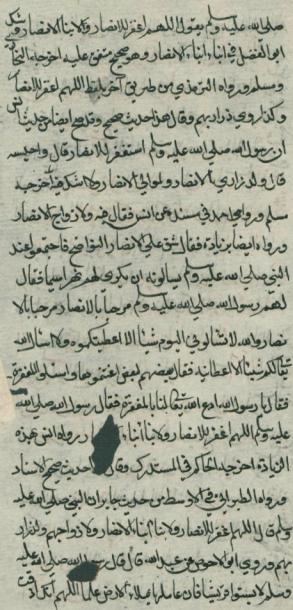 صلى الله عليه وسلم يقول اللهم اغفر للانصار ولابناء الانصار وشك
ابو الفضل في ابناء ابناء الانصار وهو صحيح متفق عليه اخرجاه البخاري
ومسلم ورواه الترمذي من طريق آخر بلفظ اللهم اغفر للانصار
وقال هذا حديث صحيح وقد صح ايضا من حديث انس
ان رسول الله صلى الله عليه وسلم استغفر للانصار قال واحسبه
قال ولذراري الانصار ولموالي الانصار ولا شك فيه اخرجه
مسلم ورواه احمد في مسنده عن انس فقال فيه ولازواج الانصار
ورواه ايضا بزيادة فقال شق على الانصار النواضح فاجتمعوا عند
النبي صلى الله عليه وسلم يسالونه ان يكري لهم نهرا سيحا فقال
لهم رسول الله صلى الله عليه وسلم مرحبا بالانصار مرحبا بالا
نصار والله لا تسالوني اليوم شيئا الا اعطيتكموه ولا اسال الله
لكم شيئا الا اعطانيه فقال بعضهم لبعض اغتنموها وسلوا المغفرة
فقالوا يا رسول الله ادع الله لنا بالمغفرة فقال رسول الله صلى الله
عليه وسلم اللهم اغفر للانصار ولابناء الانصار ولابناء ابناء رواه انس بهذه
الزيادة اخرجه الحاكم في المستدرك وقال حديث صحيح الاسناد
ورواه الطبراني في الاوسط من حديث جابر ان النبي صلى الله عليه
وسلم قال اللهم اغفر للانصار ولابناء ابناء الانصار ولازواجهم ولذرار
يهم وروى ابو الاحوص عن عبد الله قال قال رسول الله صلى الله عليه
وسلم لا تسبوا قريشا فان عالمها يملا الارض علما اللهم اذقت